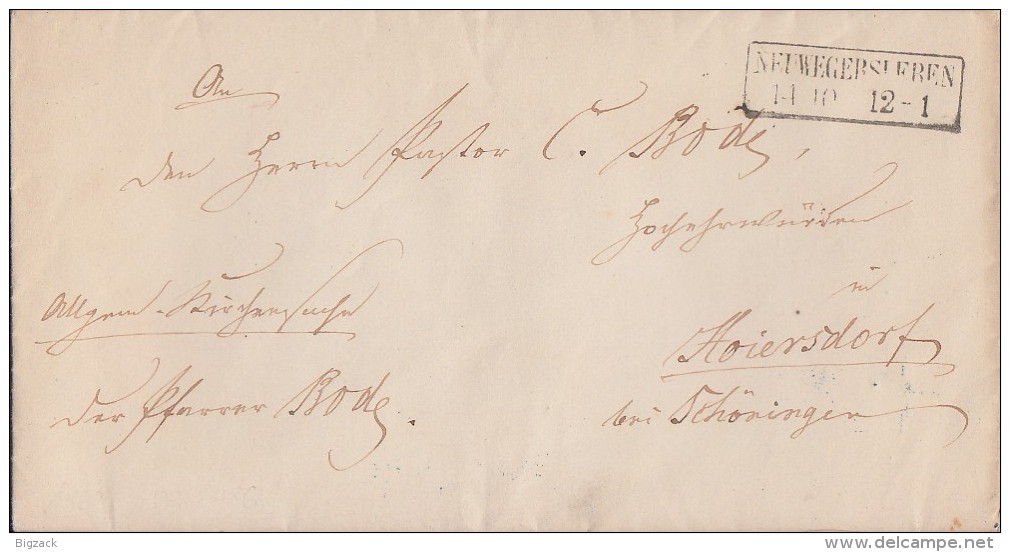 An
den Herrn Pastor C. Bode,
Hochehrwürden
in
Hoiersdorf
bei Schöningen
Allgem. Kirchensache
Der Pfarrer Bode.
NEUWEGERSLEBEN
14 10 12-1
Bigzack
delcampe.net